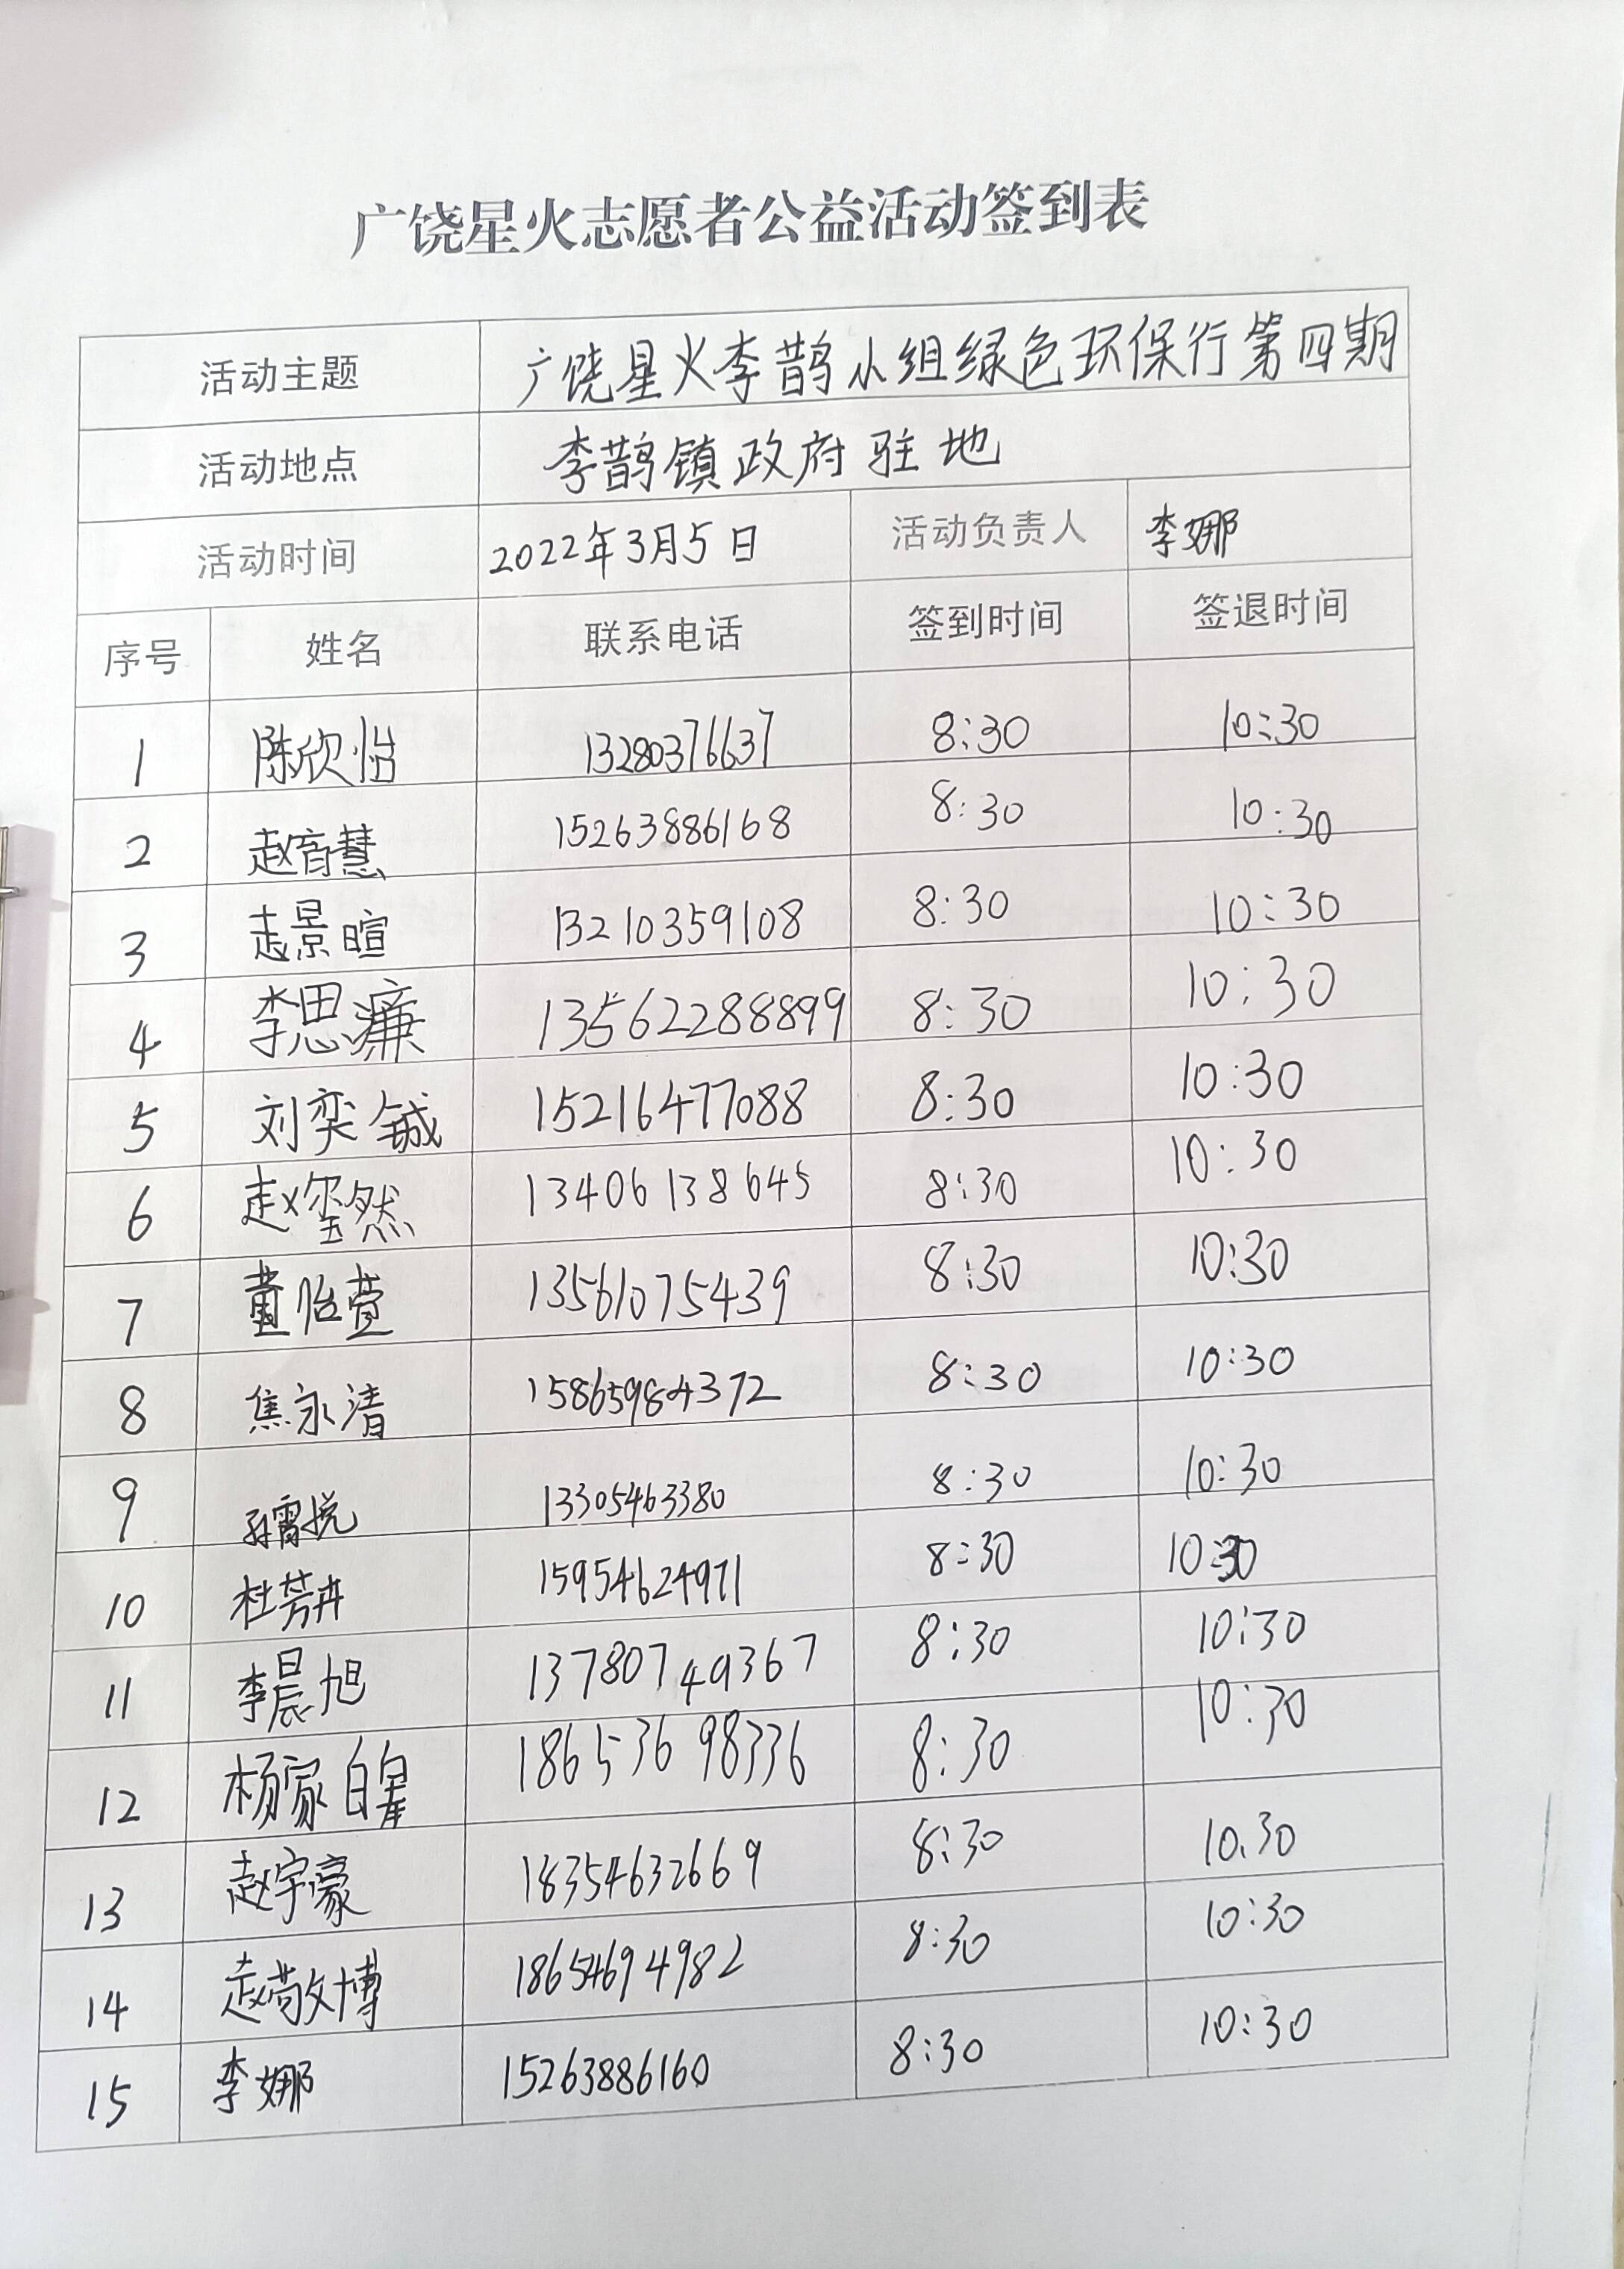 广饶星火志愿者公益活动签到表
活动主题 广饶星火李鹊小组绿色环保行第四期
活动地点 李鹊镇政府驻地
活动时间 2022年3月5日 活动负责人 李娜
序号 姓名 联系电话 签到时间 签退时间
1 陈欣怡 13280376637 8:30 10:30
2 赵音慧 15263886168 8:30 10:30
3 赵景暄 13210359108 8:30 10:30
4 李思濂 13562288899 8:30 10:30
5 刘奕铖 15216477088 8:30 10:30
6 赵玺然 13406138645 8:30 10:30
7 董怡萱 13561075439 8:30 10:30
8 焦永清 15865984372 8:30 10:30
9 孙雷悦 13305463380 8:30 10:30
10 杜芳卉 15954624971 8:30 10:30
11 李晨旭 13780749367 8:30 10:30
12 杨家 18653698336 8:30 10:30
13 赵宇豪 18354632669 8:30 10.30
14 赵敬博 18654694982 8:30 10:30
15 李娜 15263886160 8:30 10:30